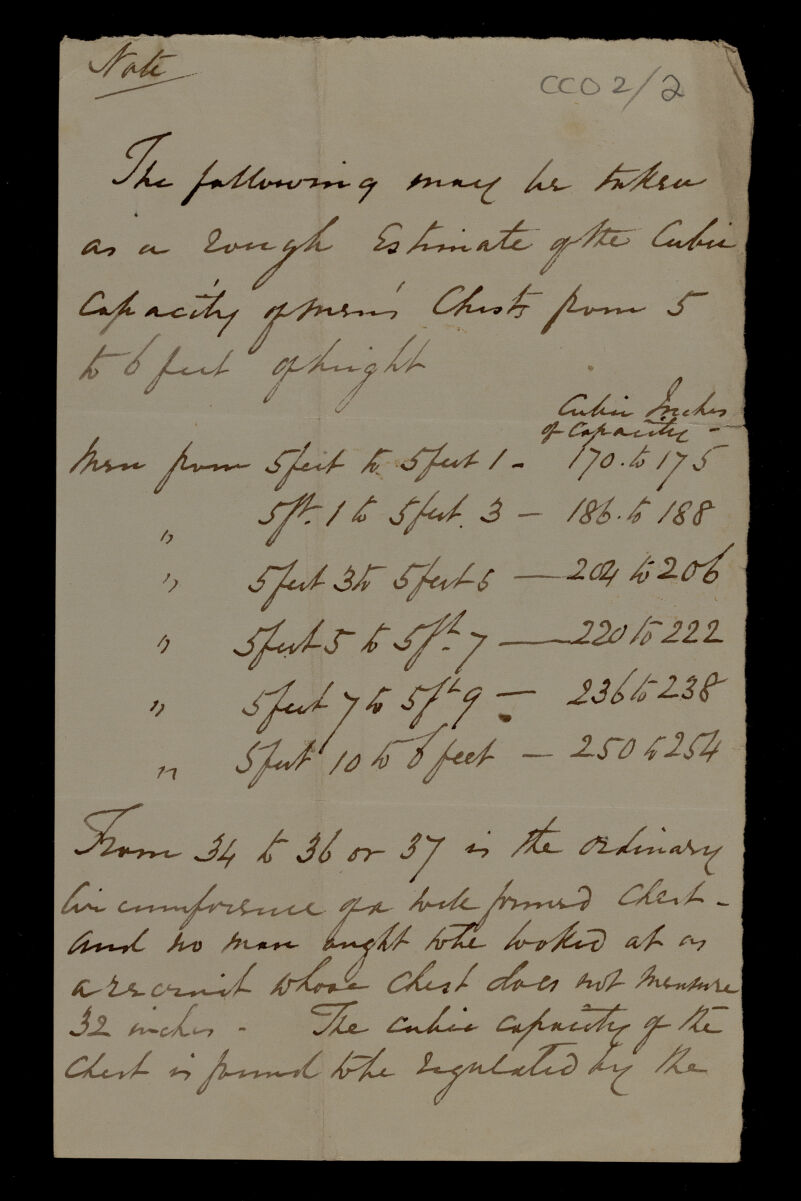 Note
CCO 2/2
The following may be taken
as a rough Estimate of the Cubic
Capacity of men's Chests from 5
to 6 feet of height
Cubic Inches
of Capacity -
Men from 5 feet to 5 feet 1 - 170. to 175
" 5ft. 1 to 5 feet 3 - 186. to 188
" 5 feet 3 to 5 feet 5 - 204 to 206
" 5 feet 5 to 5ft. 7 - 220 to 222
" 5 feet 7 to 5ft 9 - 236 to 238
" 5 feet 10 to 6 feet - 250 to 254
From 34 to 36 or 37 is the ordinary
Circumference of a well formed Chest -
and no man ought to be looked at as
a recruit whose Chest does not measure
32 inches - The cubic capacity of the
Chest is found to be regulated by the